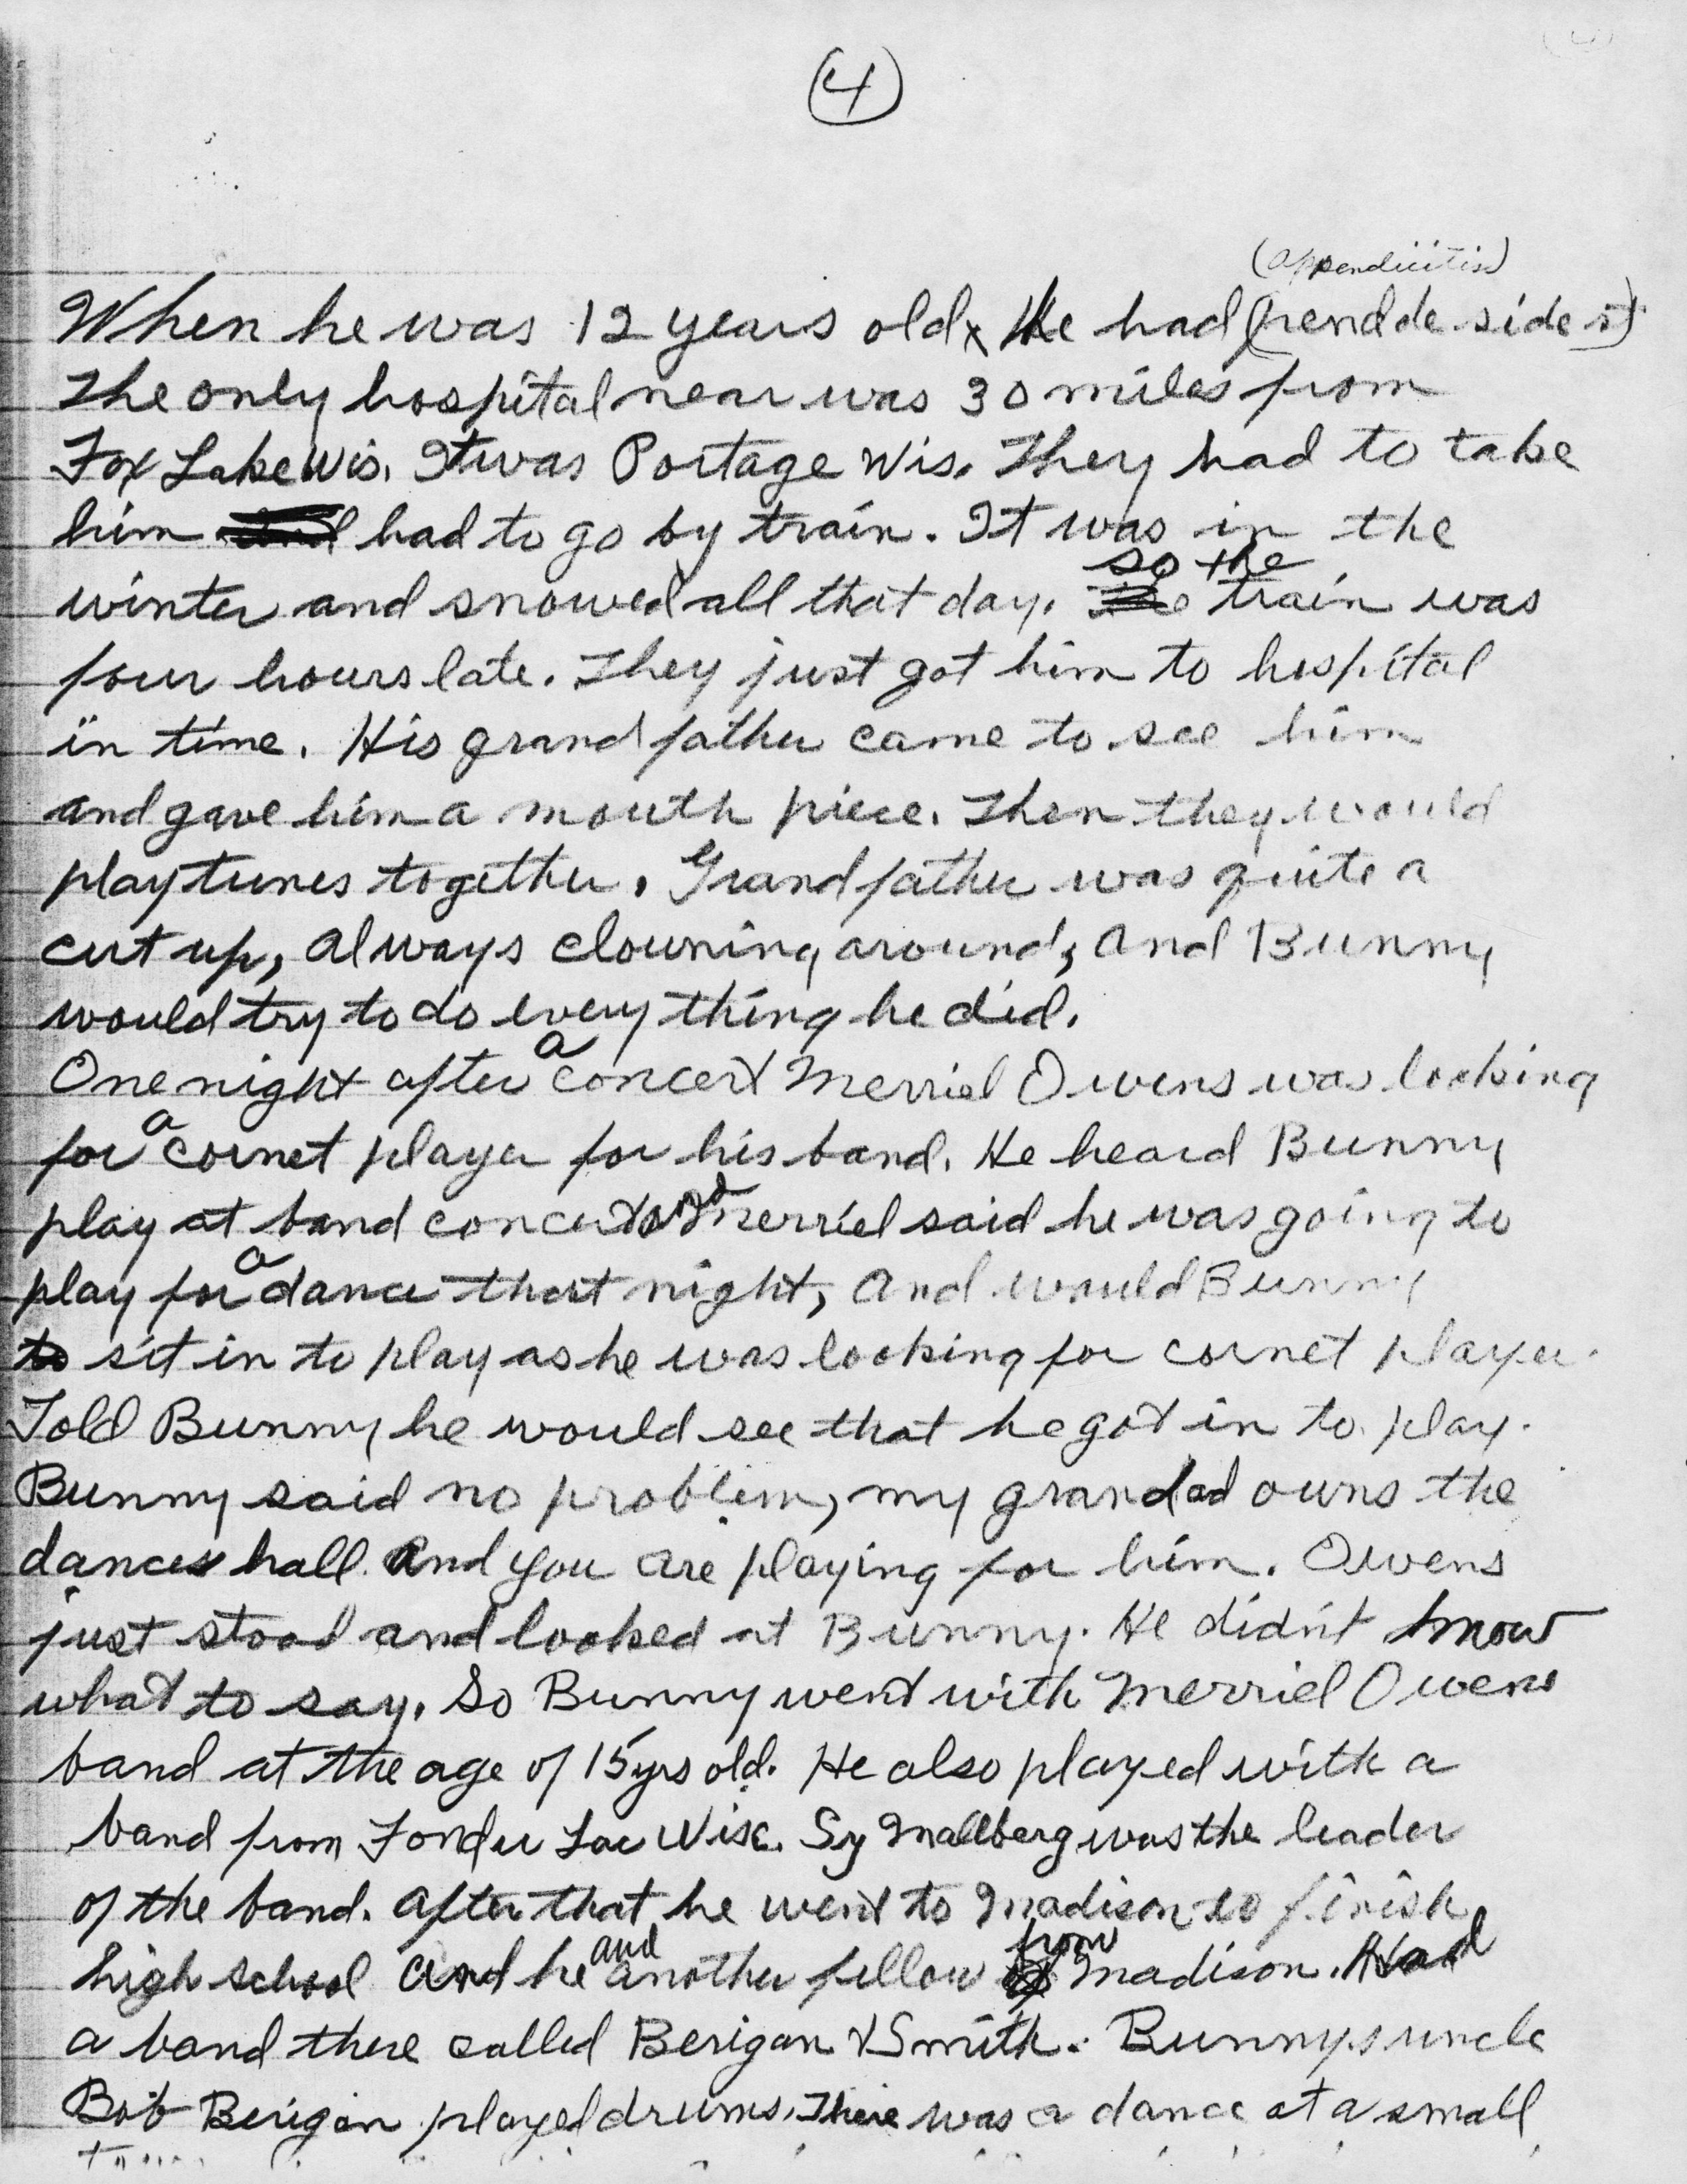 (4)
(appendicitis)
When he was 12 years old, He had (pendde side st)
The only hospital near was 30 miles from
Fox Lake Wis. It was Portage Wis. They had to take
him had to go by train. It was in the
so the
winter and snowed all that day. train was
four hours late. They just got him to hospital
in time. His grandfather came to see him
and gave him a mouth piece. Then they would
play tunes together. Grandfather was quite a
cut up, always clowning around, and Bunny
would try to do every thing he did.
One night after a concert Merriel Owens was looking
for a cornet player for his band. He heard Bunny
play at band concert and Merriel said he was going to
play for a dance that night, and would Bunny
to sit in to play as he was looking for cornet player.
Told Bunny he would see that he got in to play.
Bunny said no problem, my grandad owns the
dances hall. And you are playing for him. Owens
just stood and looked at Bunny. He didn't know
what to say. So Bunny went with Merriel Owens
band at the age of 15 yrs old. He also played with a
band from Fondu Lac Wisc. Sy Mallberg was the leader
of the band. After that he went to Madison to finish
high school and he and another fellow from Madison. Had
a band there called Berigan & Smith. Bunny's uncle
Bob Berigan played drums. There was a dance at a small